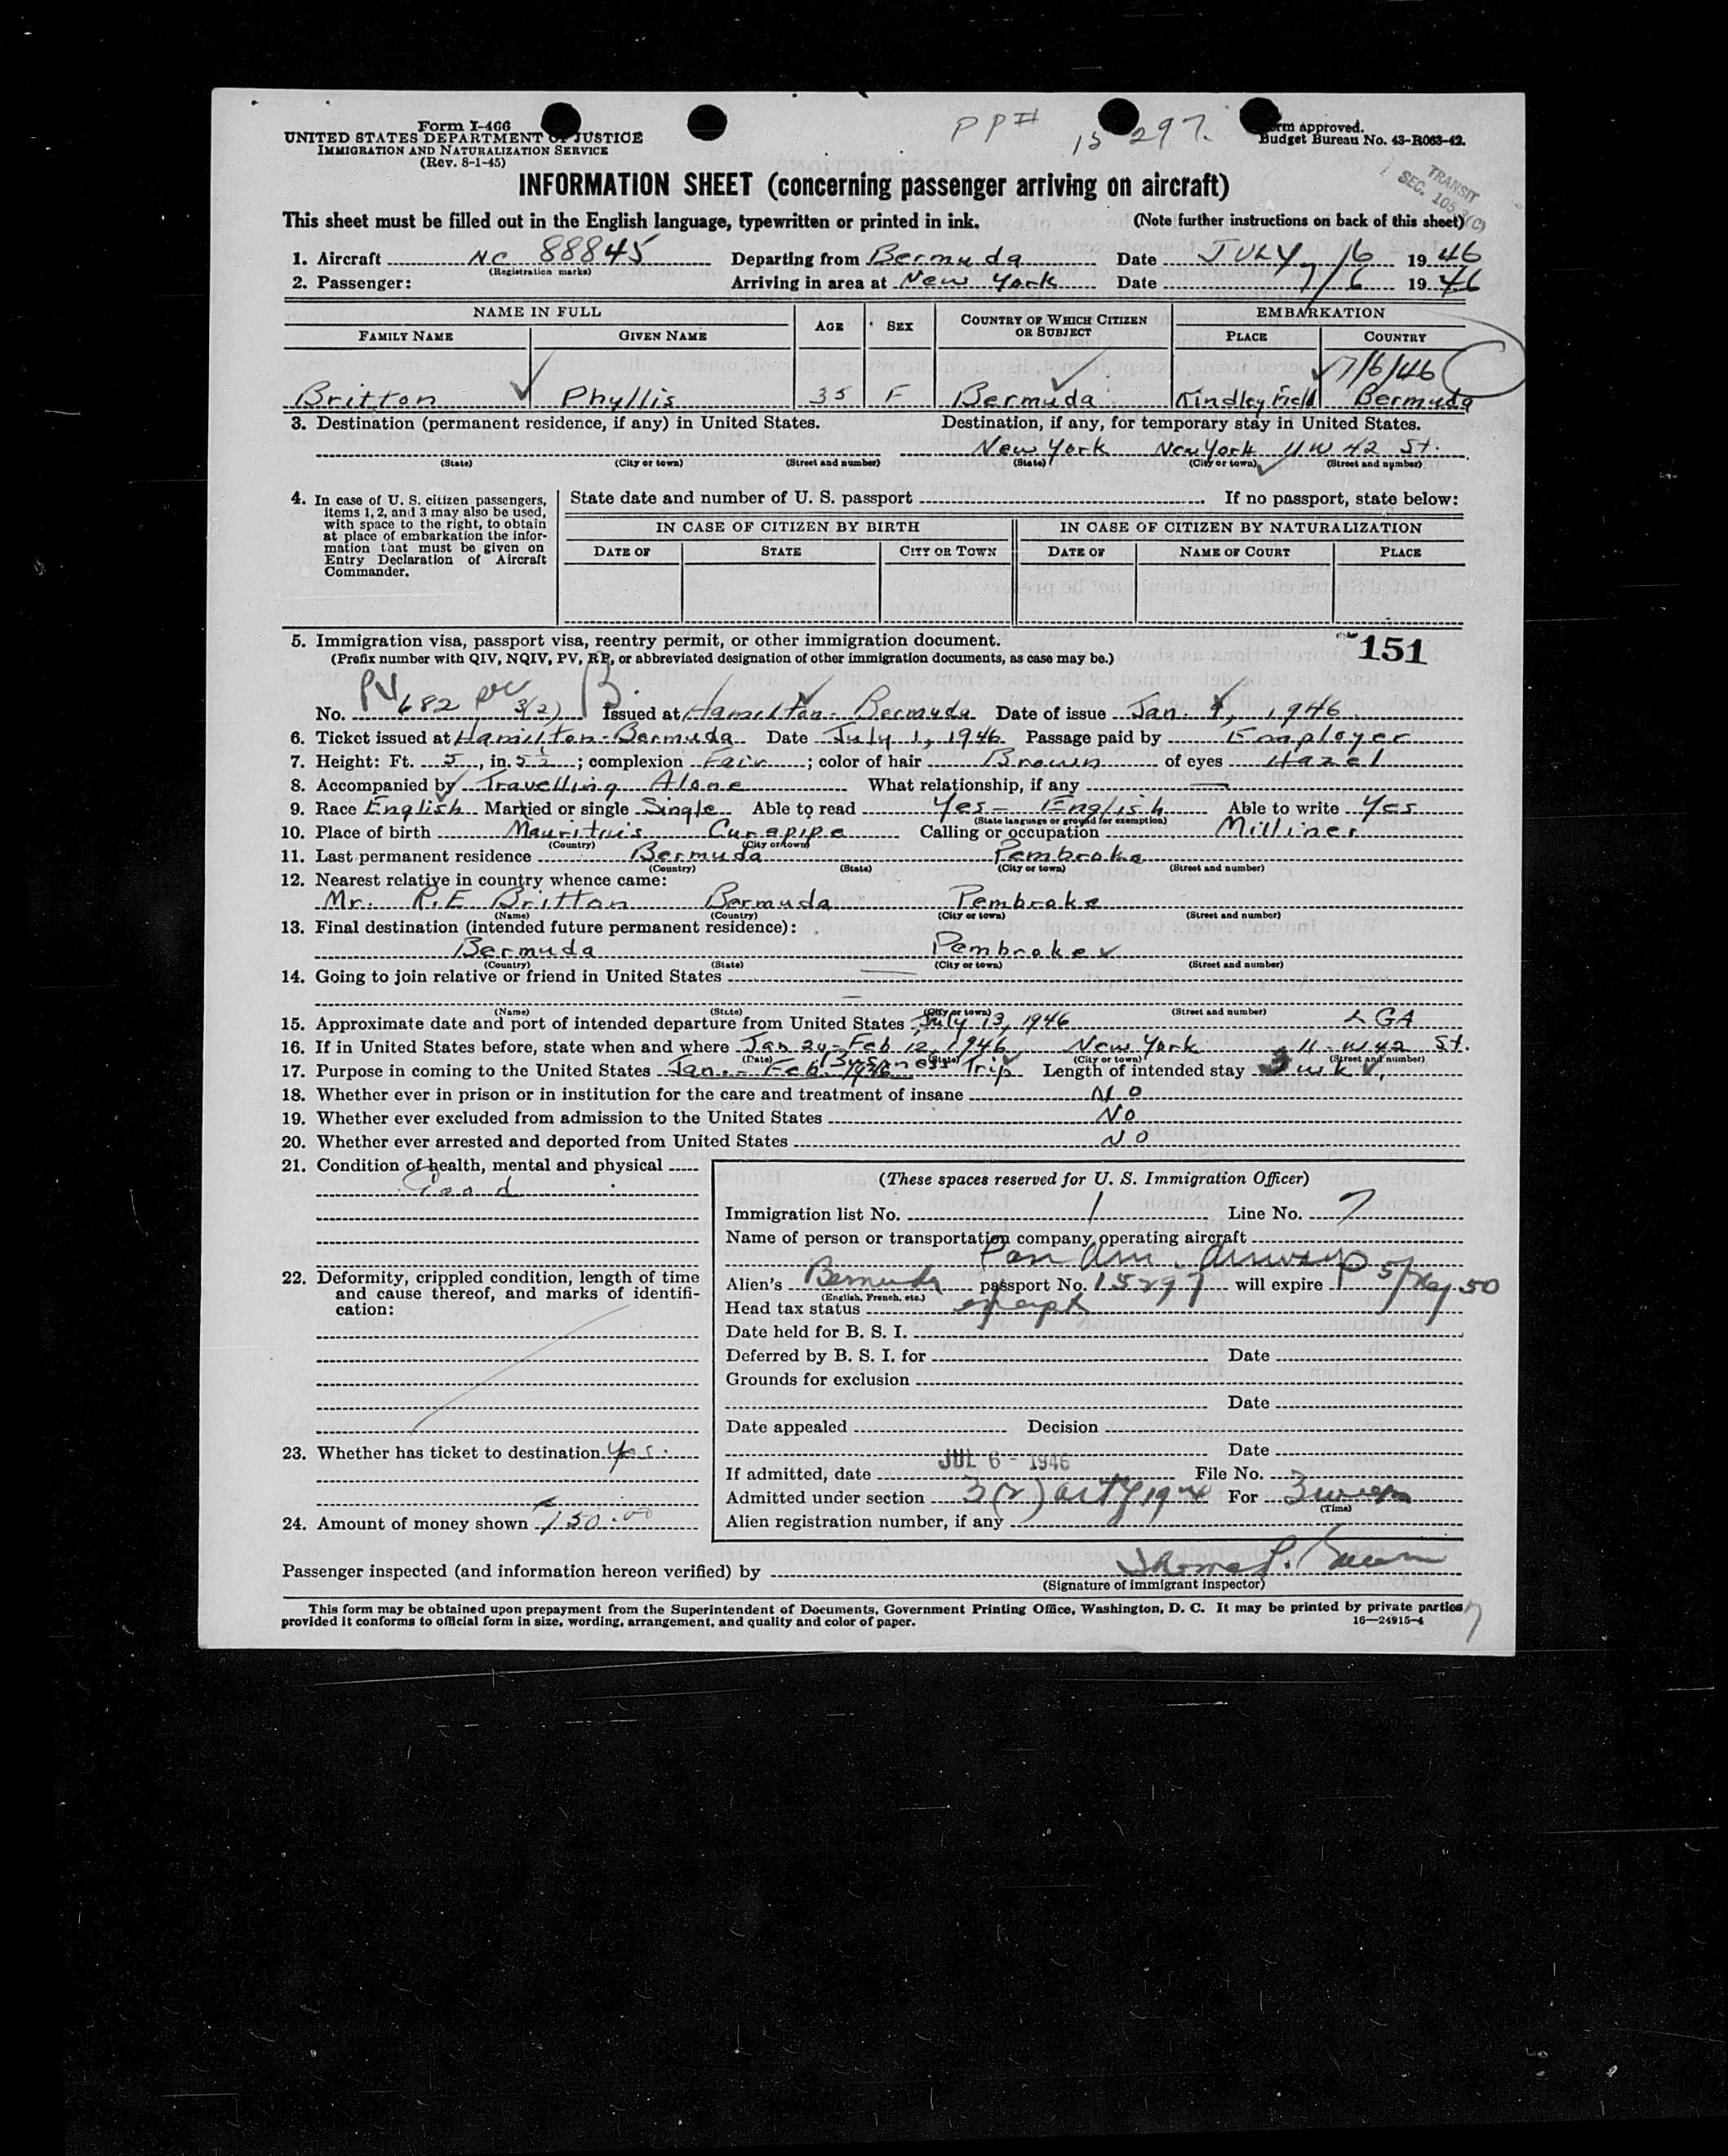 Form I-466
UNITED STATES DEPARTMENT OF JUSTICE
IMMIGRATION AND NATURALIZATION SERVICE
(Rev. 8-1-45)
PP# 15297.
Form approved.
Budget Bureau No. 43-R063-42.
TRANSIT
SEC. 105.3(C)
INFORMATION SHEET (concerning passenger arriving on aircraft)
This sheet must be filled out in the English language, typewritten or printed in ink. (Note further instructions on back of this sheet)
1. Aircraft NC 88845 Departing from Bermuda Date JULY /6 1946
(Registration marks)
2. Passenger: Arriving in area at New York Date 7/6 1946
NAME IN FULL AGE SEX COUNTRY OF WHICH CITIZEN OR SUBJECT EMBARKATION
FAMILY NAME GIVEN NAME PLACE COUNTRY
7/6/46
Britton Phyllis 35 F Bermuda Kindley Field Bermuda
3. Destination (permanent residence, if any) in United States. Destination, if any, for temporary stay in United States.
New York New York 11 W 42 St.
(State) (City or town) (Street and number) (State) (City or town) (Street and number)
4. In case of U. S. citizen passengers, items 1, 2, and 3 may also be used, with space to the right, to obtain at place of embarkation the information that must be given on Entry Declaration of Aircraft Commander.
State date and number of U. S. passport If no passport, state below:
IN CASE OF CITIZEN BY BIRTH IN CASE OF CITIZEN BY NATURALIZATION
DATE OF STATE CITY OR TOWN DATE OF NAME OF COURT PLACE
5. Immigration visa, passport visa, reentry permit, or other immigration document.
(Prefix number with QIV, NQIV, PV, RP, or abbreviated designation of other immigration documents, as case may be.)
151
No. PV 682 3(2) B. Issued at Hamilton - Bermuda Date of issue Jan. 9, 1946
6. Ticket issued at Hamilton - Bermuda Date July 1, 1946 Passage paid by Employer
7. Height: Ft. 5, in. 5½; complexion Fair; color of hair Brown of eyes Hazel
8. Accompanied by Travelling Alone What relationship, if any —
9. Race English Married or single Single Able to read Yes - English Able to write Yes
(State language or ground for exemption)
10. Place of birth Mauritius Curepipe Calling or occupation Milliner
(Country) (City or town)
11. Last permanent residence Bermuda Pembroke
(Country) (State) (City or town) (Street and number)
12. Nearest relative in country whence came:
Mr. R.E Britton Bermuda Pembroke
(Name) (Country) (City or town) (Street and number)
13. Final destination (intended future permanent residence):
Bermuda Pembroke
(Country) (State) (City or town) (Street and number)
14. Going to join relative or friend in United States —
—
(Name) (State) (City or town) (Street and number)
15. Approximate date and port of intended departure from United States July 13, 1946 LGA
16. If in United States before, state when and where Jan 20 - Feb 12, 1946 New York 11 - W 42 St.
(Date) (State) (City or town) (Street and number)
17. Purpose in coming to the United States Jan. - Feb 1946 Business Trip Length of intended stay 3 wk
18. Whether ever in prison or in institution for the care and treatment of insane NO
19. Whether ever excluded from admission to the United States NO
20. Whether ever arrested and deported from United States NO
21. Condition of health, mental and physical
Good
22. Deformity, crippled condition, length of time and cause thereof, and marks of identification:
23. Whether has ticket to destination Yes.
24. Amount of money shown 150.00
(These spaces reserved for U. S. Immigration Officer)
Immigration list No. 1 Line No. 7
Name of person or transportation company operating aircraft
Pan Am. Airways
Alien's Bermuda passport No. 15297 will expire 5/May 50
(English, French, etc.)
Head tax status exempt
Date held for B. S. I.
Deferred by B. S. I. for Date
Grounds for exclusion
Date
Date appealed Decision
Date
If admitted, date JUL 6 - 1946 File No.
Admitted under section 3(2) act of 1924 For 3 weeks
(Time)
Alien registration number, if any
Passenger inspected (and information hereon verified) by Thomas P.
(Signature of immigrant inspector)
This form may be obtained upon prepayment from the Superintendent of Documents, Government Printing Office, Washington, D. C. It may be printed by private parties
provided it conforms to official form in size, wording, arrangement, and quality and color of paper. 16—24915-4
7